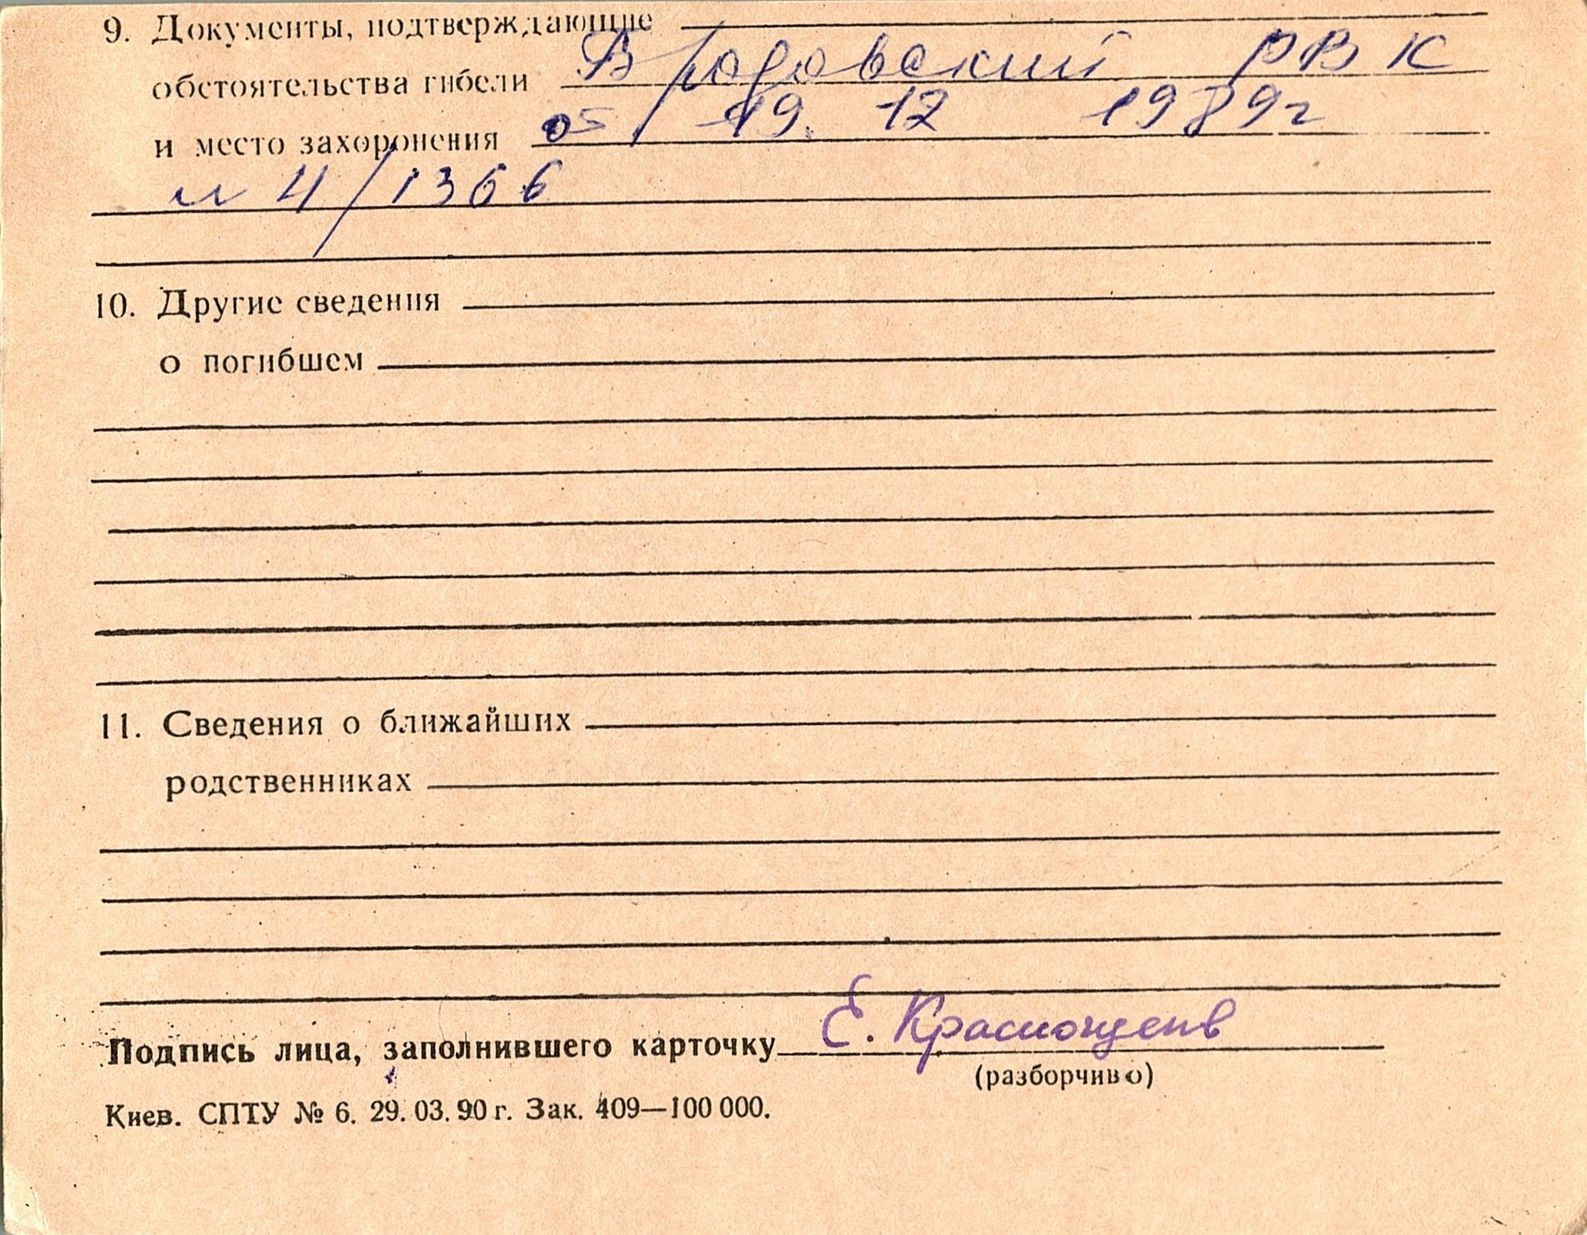 9. Документы, подтверждающие
обстоятельства гибели Бродовский РВК
и место захоронения от 19. 12 1989г
№ 4/1366
10. Другие сведения
о погибшем
11. Сведения о ближайших
родственниках
Подпись лица, заполнившего карточку Е.
(разборчиво)
Киев. СПТУ № 6. 29.03.90 г. Зак. 409—100 000.